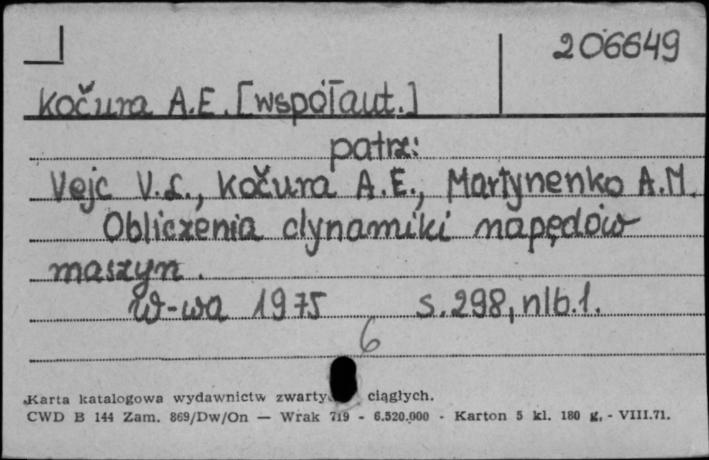 206649
Kočura A.E. [współaut.]
patrz:
Vejc V.L., Kočura A.E., Martynenko A.M.
Obliczenia dynamiki napędów
maszyn.
W-wa 1975 s.298, nlb.1.
6
Karta katalogowa wydawnictw zwarty ciągłych.
CWD B 144 Zam. 869/Dw/On — Wrak 719 - 6.520.000 - Karton 5 kl. 180 g. - VIII.71.